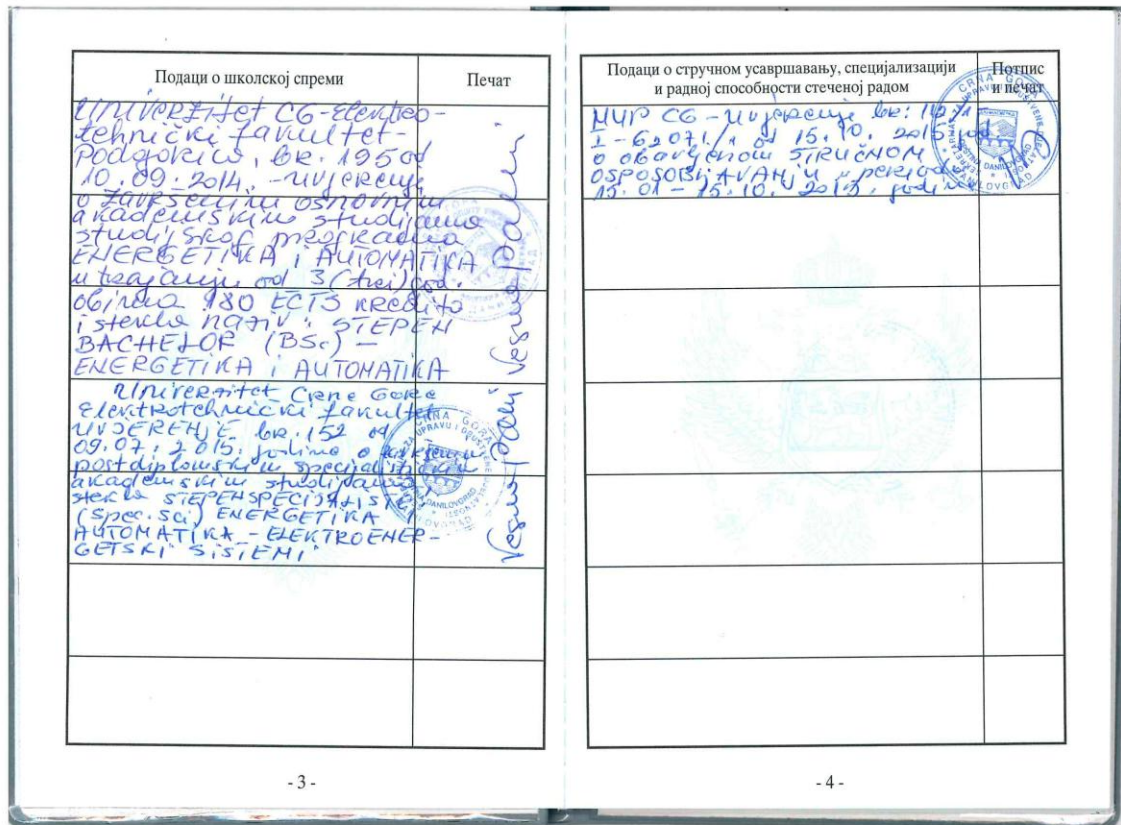 Подаци о школској спреми
Печат
Univerzitet CG-Elektro-
tehnički fakultet-
Podgorica, br. 195 od
10.09.2014. -uvjerenje
o završenim osnovnim
akademskim studijama
studijskog programa
ENERGETIKA i AUTOMATIKA
u trajanju od 3 (tri) god.
obima 180 ECTS kredita
i stekla naziv: STEPEN
BACHELOR (BSc) -
ENERGETIKA i AUTOMATIKA
Univerzitet Crne Gore
Elektrotehnički fakultet
UVJERENJE br. 152 od
09.07.2015. godine o
postdiplomskim specijalističkim
akademskim studijama
stekla STEPEN SPECIJALISTE
(Spec.Sci) ENERGETIKA
AUTOMATIKA - ELEKTROENER-
GETSKI SISTEMI
- 3 -
Подаци о стручном усавршавању, специјализацији
и радној способности стеченој радом
Потпис
и печат
CRNA GORA
DANILOVGRAD
MUP CG - uvjerenje br:
I-62071/1 od 15.10.2015
o obavljenom STRUČNOM
OSPOSOBLJAVANJU u periodu
15.01 - 15.10.2015. godine
- 4 -